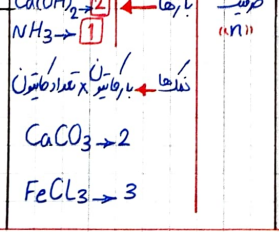 Ca(OH)₂→2 ← بازها ظرفیت
NH3→1 "n"
نمک‌ها ← بار کاتیون × تعداد کاتیون
CaCO3→2
FeCl3→3